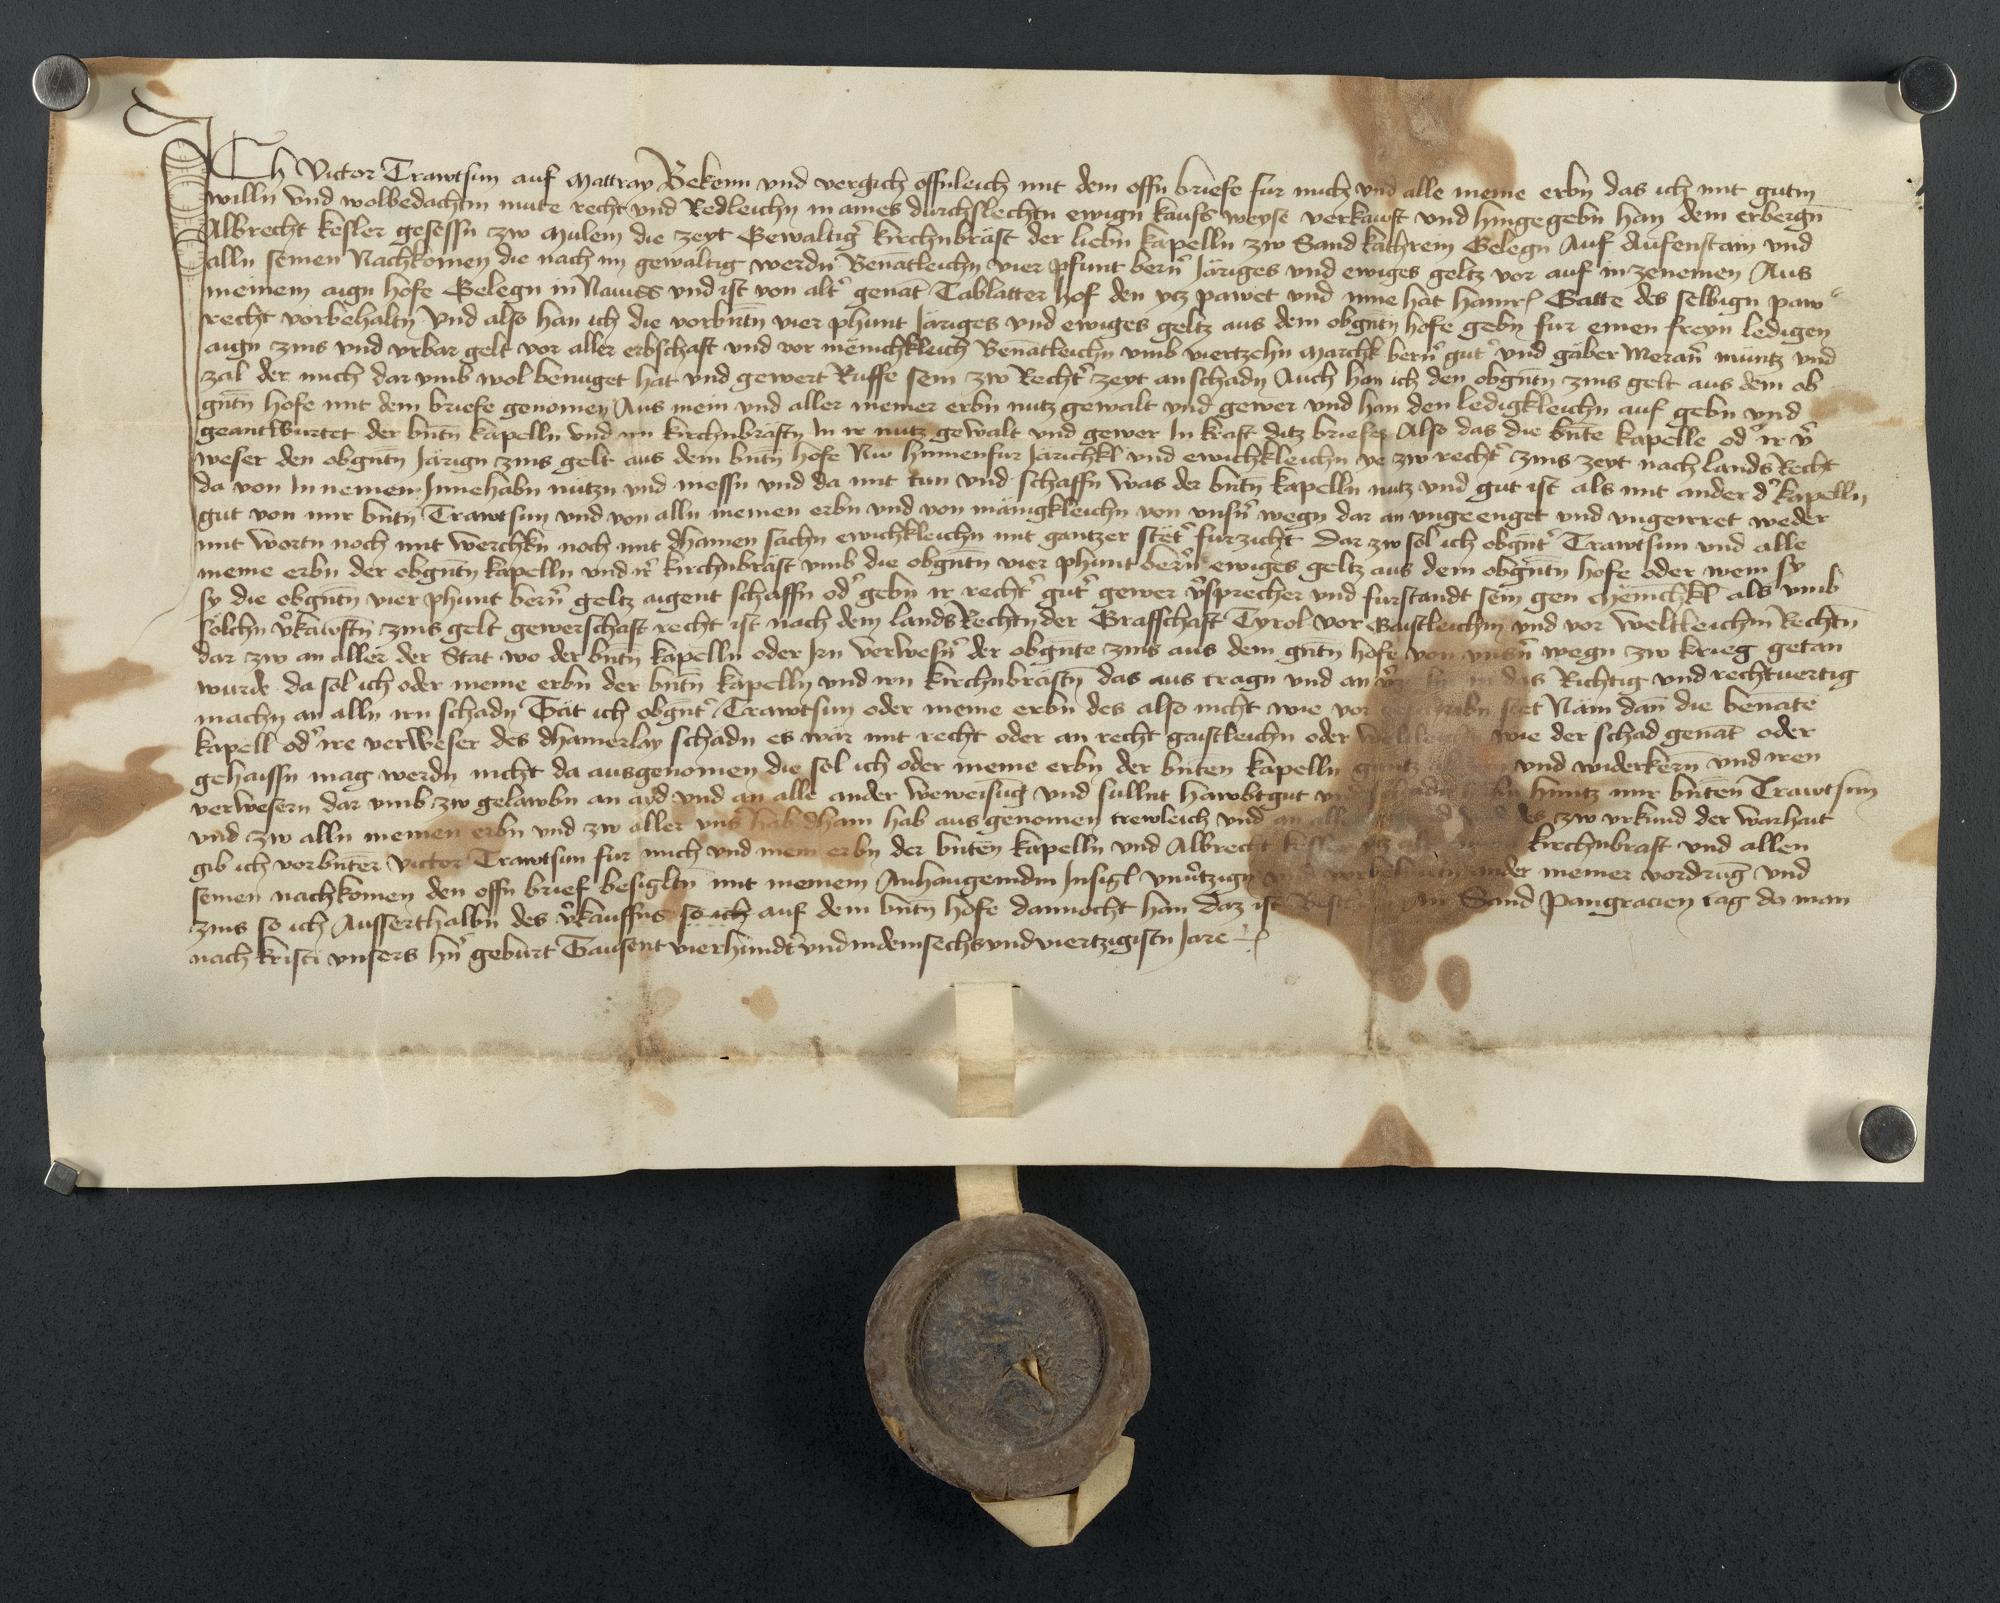 ICh Victor Trawtsun auf Mattray Bekenn vnd vergich offnleich mit dem offn briefe fur mich vnd alle meine erbn das ich mit gutm
willn vnd wolbedachtm mute recht vnd Redleichn in aines durchslechtn ewign kaufs weyse verkauft vnd hingegebn han dem erbergn
Albrecht kesler gesessn zw Mulein die zeyt Gewaltigr kirchnbräst der liebn kapelln zw Sand kathrein Gelegn Auf Aufenstain vnd
alln seinen Nachkomen die nach im gewaltig werdn Benātleichn vier pfunt bern Järiges vnd ewiges geltz vor auf in zenemen Aus
meinem aign hofe Gelegn in Nauiss vnd ist von altr genāt Tablatter hof den ytz pawet vnd inne hat Hainr Gatte des selbign paw
recht vorbehaltn Vnd also han ich die vorbntn vier phunt Järiges vnd ewiges geltz aus dem obgntn hofe gebn fur einen freyn ledigen
aign zins vnd vrbar gelt vor aller erbschaft vnd vor mënichkleich Benātleichn vmb viertzehn Marchk bern gutr vnd gäber Meranr muntz vnd
zal der mich dar vmb wol benuget hat vnd gewert Ruffe sein zw Rechtr zeyt an schadn Auch han ich den obgntn zins gelt aus dem ob
gntn hofe mit dem briefe genomen Aus mein vnd aller meiner erbn nutz gewalt vnd gewer vnd han den ledigkleichn auf gebn vnd
geantwurtet der bntn kapelln vnd irn kirchnbrästn In ir nutz gewalt vnd gewer In kraft ditz briefes Also das die bnte kapelle odr ir vr
weser den obgntn Järign zins gelt aus dem bntn hofe Nw hinnenfur Järichkl vnd ewichkleichn ye zw rechtr zins zeyt nach lands Recht
da von In nemen Innehabn nützn vnd niessn vnd da mit tun vnd schaffn was der bntn kapelln nutz vnd gut ist als mit ander dr kapelln
gut von mir bntn Trawtsun vnd von alln meinen erbn vnd von mänigkleichn von vnsrn wegn dar an vngeenget vnd vngeirret weder
mit wortn noch mit werchkn noch mit dhainen sachn ewichkleichn mit gantzer stëtr furzicht Dar zw sol ich obgntr Trawtsun vnd alle
meine erbn der obgntn kapelln vnd ir kirchnbräst vmb die obgntn vier phunt bern ewiges geltz aus dem obgntn hofe oder wem sy
sy die obgntn vier phunt bern geltz aigent schaffn odr gebn ir rechtr gutr gewer vrsprecher vnd furstandt sein gen mënichkl als vmb
sölchn vrkawftn zins gelt gewerschaft recht ist nach dem lands Rechtn der Grafschaft Tyrol vor Gaistleichm vnd vor weltleichm Rechtn
dar zw an aller der Stat wo der bntn kapelln oder irn verwesrn der obgnte zins aus dem gntn hofe von vnsrn wegn zw krieg getan
wurde da sol ich oder meine erbn der bntn kapelln vnd irn kirchnbrästn das aus tragn vnd an in das Richtig vnd rechtuertig
machn an alln irn schadn Tät ich obgntr Trawtsun oder meine erbn des also nicht wie vor stet Näm dan die benāte
kapell odr ire verweser des dhainerlay schadn es wär mit recht oder an recht gaistleichn oder wie der schad genāt oder
gehaissn mag werdn nicht da ausgenomen die sol ich oder meine erbn der bnten kapelln gantz vnd widerkern vnd iren
verwesern dar vmb zw gelawbn an ayd vnd an alle ander weweisug vnd sullnt hawbtgut vnd hintz mir bnten Trawtsun
vnd zw alln meinen erbn vnd zw aller vns hab dhain hab aus genomen trewleich vnd an alle des zw vrkund der warhait
gib ich vorbnter Victor Trawtsun fur mich vnd mein erbn der bnten kapelln vnd Albrecht kesler ytz kirchnbrast vnd allen
seinen nachkomen den offn brief besigltn mit meinem Anhangenidm Insigl vnurtzign ander meiner vordrug vnd
zins so ich Ausserthalbn des vrkauffns so ich auf dem bntn hofe dannocht han daz ist An Sand Pangracien tag do man
nach kristi vnsers hrn geburt Tausent vierhundrt vnd in dem sechs vnd viertzigistn Jare